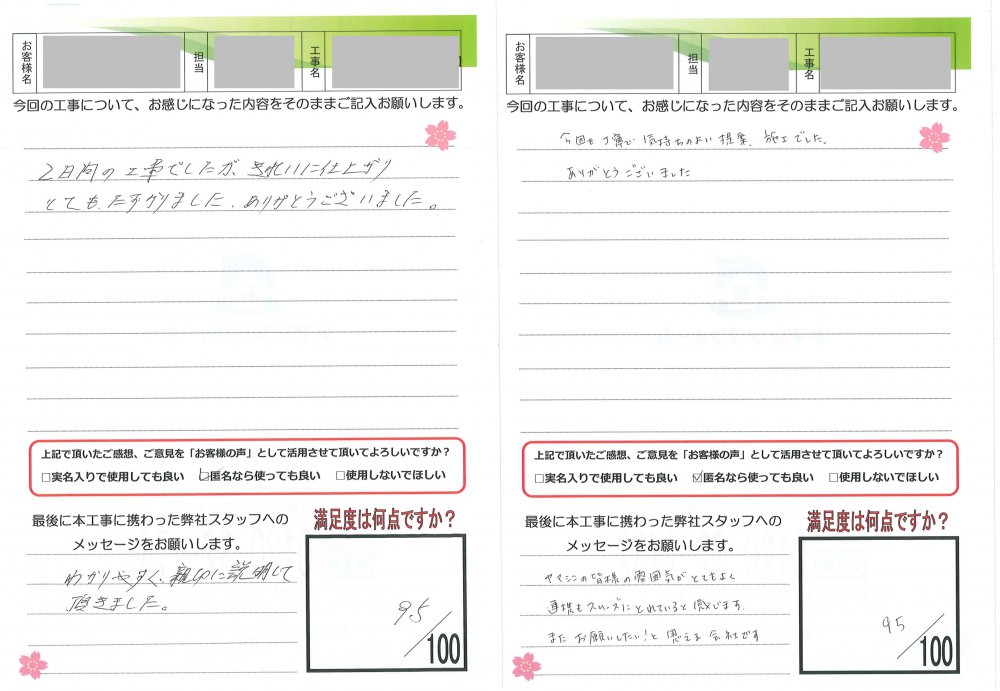 お客様名
担当
工事名
今回の工事について、お感じになった内容をそのままご記入お願いします。
2日間の工事でしたが、きれいに仕上がり
とても、たすかりました、ありがとうございました。
上記で頂いたご感想、ご意見を「お客様の声」として活用させて頂いてよろしいですか？
□実名入りで使用しても良い ☑匿名なら使っても良い □使用しないでほしい
最後に本工事に携わった弊社スタッフへの
メッセージをお願いします。
わかりやすく、親切に説明して
頂きました。
満足度は何点ですか？
95/100
お客様名
担当
工事名
今回の工事について、お感じになった内容をそのままご記入お願いします。
今回も丁寧で気持ちのよい提案、施工でした。
ありがとうございました
上記で頂いたご感想、ご意見を「お客様の声」として活用させて頂いてよろしいですか？
□実名入りで使用しても良い ☑匿名なら使っても良い □使用しないでほしい
最後に本工事に携わった弊社スタッフへの
メッセージをお願いします。
ヤマシンの皆様の雰囲気がとてもよく
連携もスムーズにとれていると感じます。
またお願いしたい！と思える会社です
満足度は何点ですか？
95/100